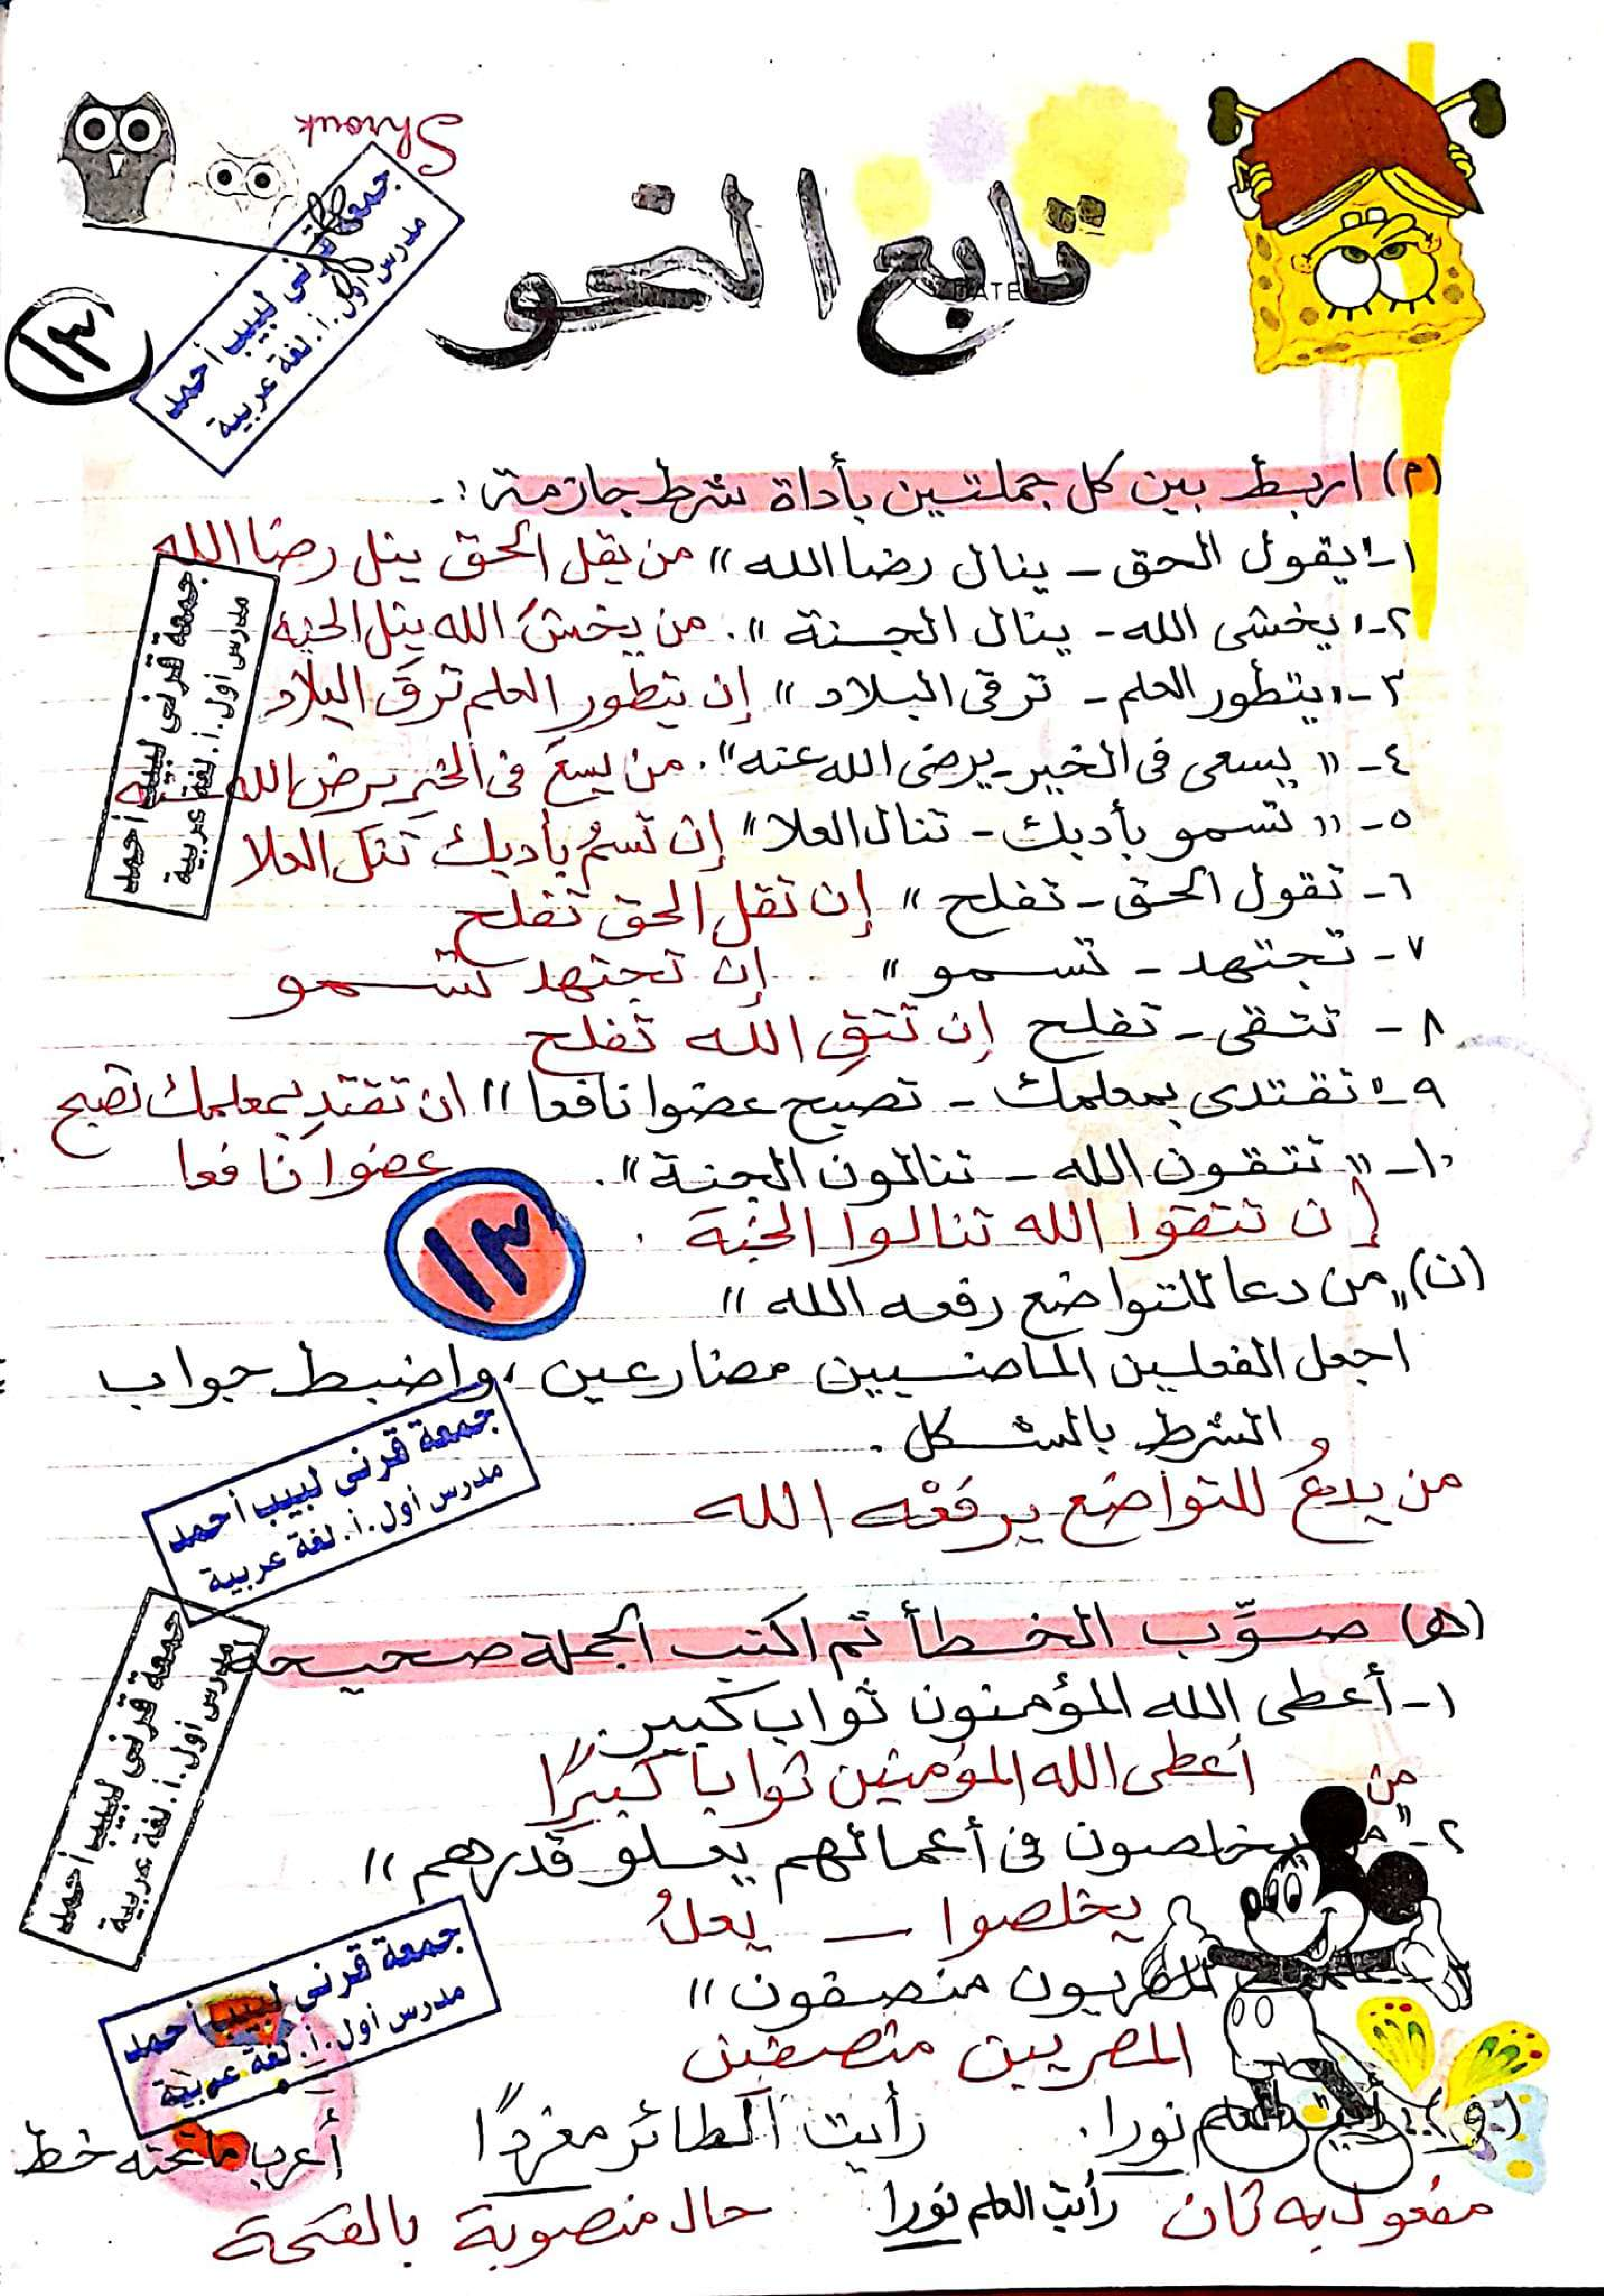 Shrouk
تابع النحو
DATE
١٣
جمعة قرنى لبيب أحمد
مدرس أول.أ. لغة عربية
(م) اربط بين كل جملتين بأداة شرط جازمة :-
١- "يقول الحق - ينال رضا الله" من يقل الحق ينل رضا الله
٢- "يخشى الله - ينال الجنة". من يخشَ الله ينل الجنة
٣- "يتطور العلم - ترقى البلاد" إن يتطور العلم ترقَ البلاد
٤- "يسعى فى الخير - يرضى الله عنه". من يسعَ فى الخير يرض الله عنه
٥- "تسمو بأدبك - تنال العلا" إن تسمُ بأدبك تنل العلا
٦- تقول الحق - تفلح" إن تقل الحق تفلح
٧- تجتهد - تسمو" إن تجتهد تسمو
٨- تتقى - تفلح إن تتقِ الله تفلح
٩- "تقتدى بمعلمك - تصبح عضوا نافعا" ان تقتدِ بمعلمك تصبح
عضوا نافعا
١٠- "تتقون الله - تنالون الجنة".
إن تتقوا الله تنالوا الجنة.
١٣
(ن) "من دعا للتواضع رفعه الله"
اجعل الفعلين الماضيين مضارعين، واضبط جواب
الشرط بالشكل.
من يدعُ للتواضع يرفعْه الله
جمعة قرنى لبيب أحمد
مدرس أول.أ. لغة عربية
(هـ) صوِّب الخطأ ثم اكتب الجملة صحيحة
١- أعطى الله المؤمنون ثواب كبير."
أعطى الله المؤمنين ثوابا كبيرًا
من
٢- " يخلصون فى أعمالهم يعلو قدرهم"
يخلصوا - يعلُ
المصريون منصفون"
المصريين منصفين
جمعة قرنى لبيب أحمد
مدرس أول.أ. لغة عربية
(و) رأيت العلم نورا. رأيت الطائر مغردًا أعرب ما تحته خط
مفعول به ثان رأيت العلم نورا حال منصوبة بالفتحة
جمعة قرنى لبيب أحمد
مدرس أول.أ. لغة عربية
جمعة قرنى لبيب أحمد
مدرس أول.أ. لغة عربية